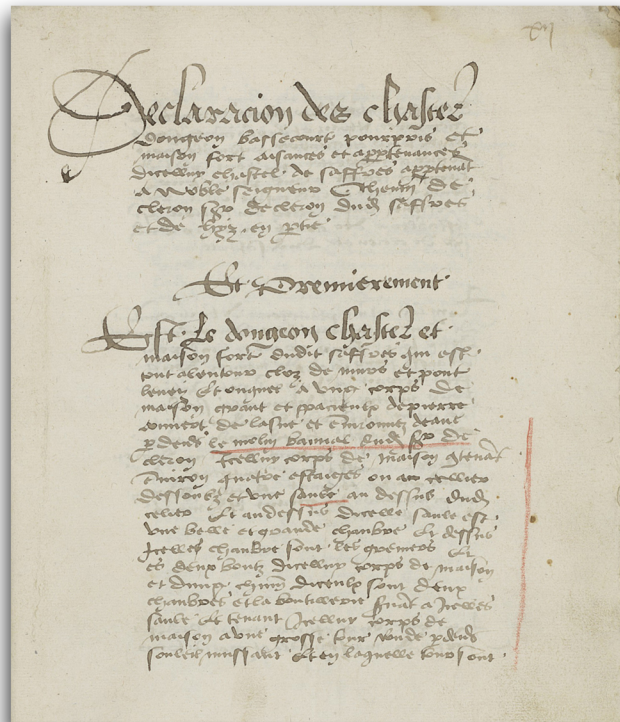 xij
Declaracion des chastel
dongeon bassecourt pourpris et
maison fort aisances et apptenances
dicelluy chastel de saffres apptenat
a noble seigneur
cleron sgr de cleron dudt saffres
et de en ptie
Et Premierement
Est le dongeon chastel et
maison fort dudit saffres qui est
tout alentour cloz de murs et pont
leveis et ouquel a ung corps de
maison grant et spacieulx de pierre
couvert de et devat
p dedens le molin bannal dudt sgr de
cleron Icelluy corps de maison tenat
environ quatre estaiges ou au cellier
dessoubz et une salle au dessus dudt
celier Et au dessus dicelle salle est
une belle et grande chambre Et dessus
Icelles chambre sont les greniers Et
es deux boutz dicelluy corps de maison
et dung diceulx sont deux
chambres et la boutillerie a Icelles
salle Et tenant Icelluy corps de
maison a une grosse tour ronde p dedens
souleil Et en laquelle tour sont